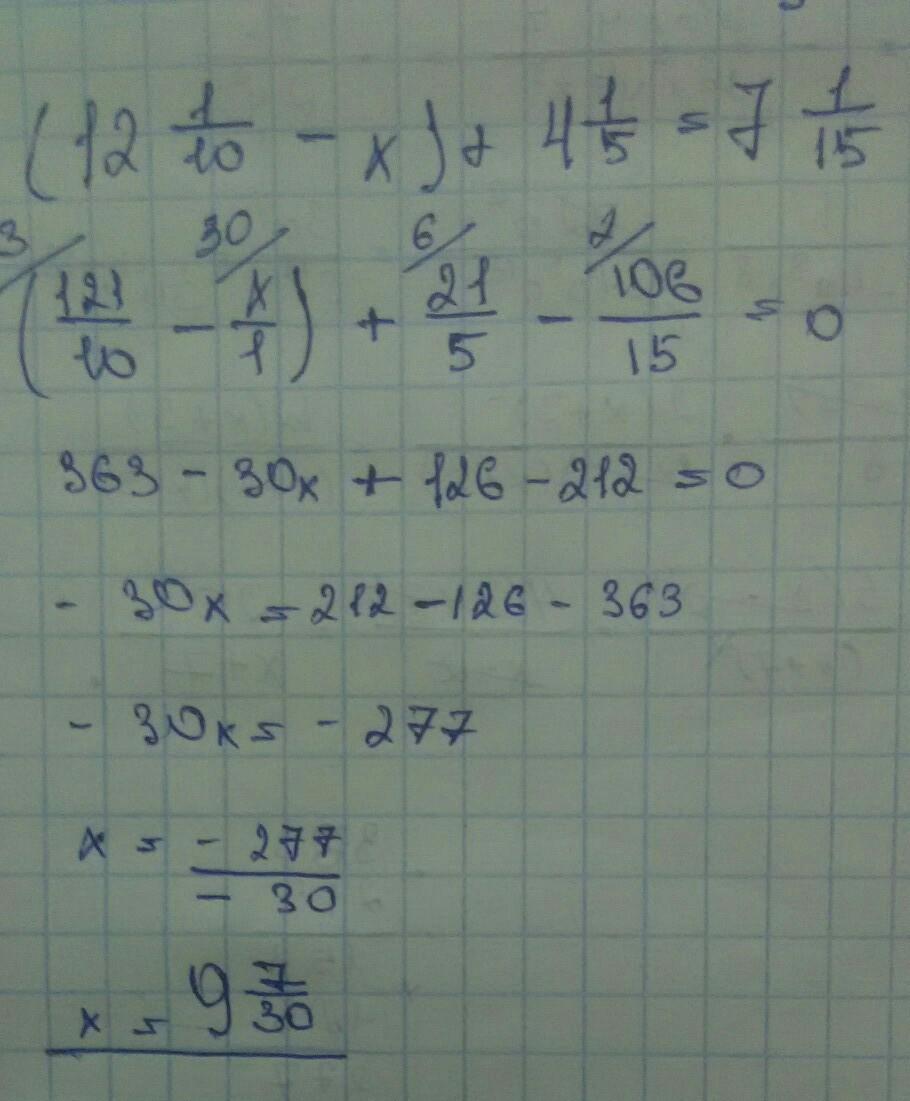 (12 1/10 - x) + 4 1/5 = 7 1/15
3/ 30/ 6/ 2/
(121/10 - x/1) + 21/5 - 106/15 = 0
363 - 30x + 126 - 212 = 0
- 30x = 212 - 126 - 363
- 30x = - 277
x = - 277 / - 30
x = 9 7/30